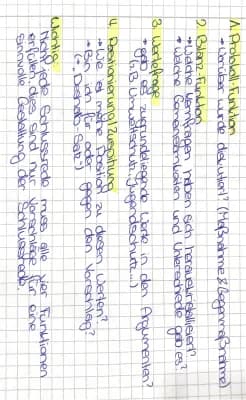 1. Protokoll-Funktion
→ Worüber wurde diskutiert? (Maßnahme & Gegenmaßnahme)
2. Bilanz-Funktion
→ Welche Kernfragen haben sich herauskristallisiert?
→ Welche Gemeinsamkeiten und Unterschiede gab es?
3. Wertefrage
→ gab es zugrundeliegende Werte in den Argumenten?
(z.B. Umweltschutz, Jugendschutz...)
4. Positionierung/Zuspitzung
→ Wie ist meine Position zu diesen Werten?
→ Bin ich für oder gegen den Vorschlag?
(→ „Deshalb“-Satz)
Wichtig:
Nicht jede Schlussrede muss alle vier Funktionen
erfüllen, dies sind nur Vorschläge für eine
sinnvolle Gestaltung der Schlussrede.